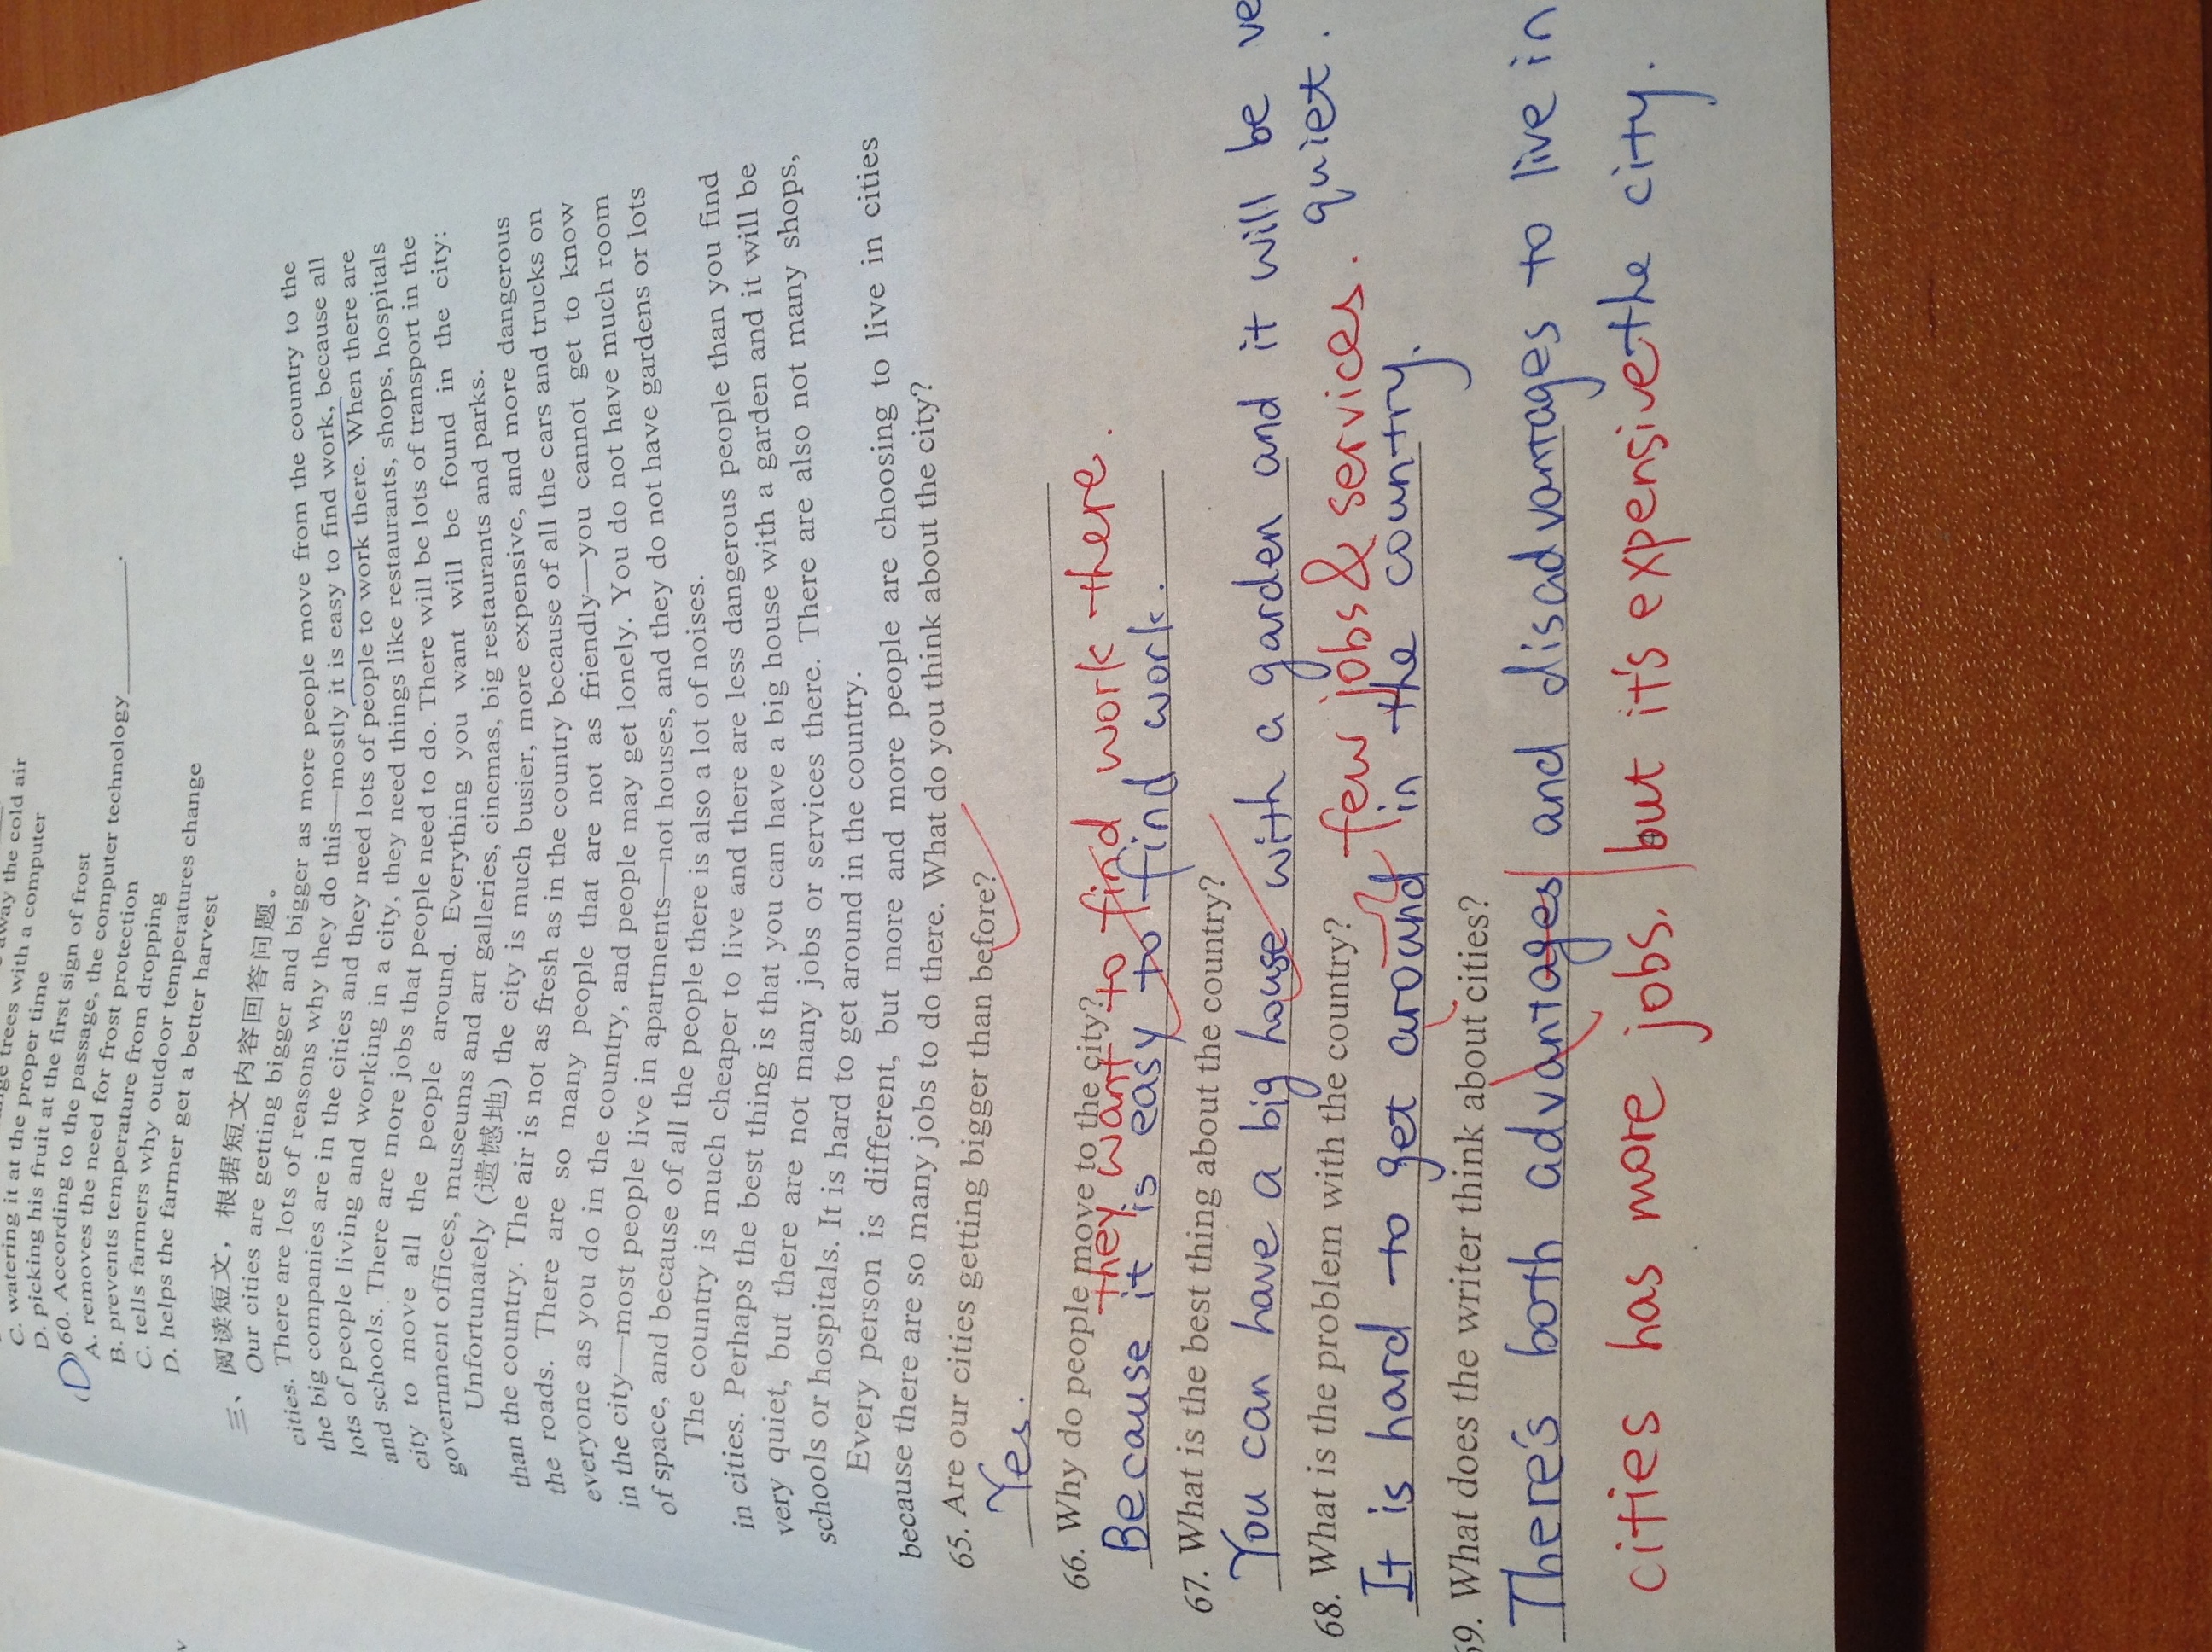 away the cold air
trees with a computer
C. watering it at the proper time
D. picking his fruit at the first sign of frost
(D) 60. According to the passage, the computer technology__________.
A. removes the need for frost protection
B. prevents temperature from dropping
C. tells farmers why outdoor temperatures change
D. helps the farmer get a better harvest
三、阅读短文，根据短文内容回答问题。
Our cities are getting bigger and bigger as more people move from the country to the
cities. There are lots of reasons why they do this—mostly it is easy to find work, because all
the big companies are in the cities and they need lots of people to work there. When there are
lots of people living and working in a city, they need things like restaurants, shops, hospitals
and schools. There are more jobs that people need to do. There will be lots of transport in the
city to move all the people around. Everything you want will be found in the city:
government offices, museums and art galleries, cinemas, big restaurants and parks.
Unfortunately (遗憾地) the city is much busier, more expensive, and more dangerous
than the country. The air is not as fresh as in the country because of all the cars and trucks on
the roads. There are so many people that are not as friendly—you cannot get to know
everyone as you do in the country, and people may get lonely. You do not have much room
in the city—most people live in apartments—not houses, and they do not have gardens or lots
of space, and because of all the people there is also a lot of noises.
The country is much cheaper to live and there are less dangerous people than you find
in cities. Perhaps the best thing is that you can have a big house with a garden and it will be
very quiet, but there are not many jobs or services there. There are also not many shops,
schools or hospitals. It is hard to get around in the country.
Every person is different, but more and more people are choosing to live in cities
because there are so many jobs to do there. What do you think about the city?
65. Are our cities getting bigger than before?
Yes.
66. Why do people move to the city?
they want to find work there.
Because it is easy to find work.
67. What is the best thing about the country?
You can have a big house with a garden and it will be ve
quiet.
68. What is the problem with the country?
few jobs & services.
It is hard to get around in the country.
69. What does the writer think about cities?
There's both advantages and disadvantages to live in
the city.
cities has more jobs. but it's expensive